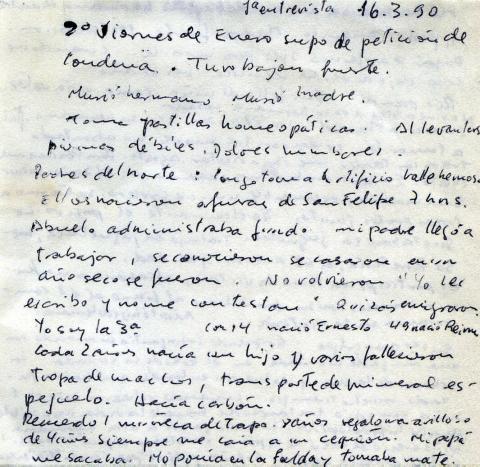 1a entrevista 16.3.90
2º Viernes de Enero supo de petición de
condena. Tuvo bajón fuerte.
Murió hermano Murió madre.
Toma pastillas homeopáticas. Al levantarse
piernas débiles. Dolores lumbares.
Padres del norte:
Ellos nacieron afueras de San Felipe 7 hns.
Abuelo administraba fundo mi padre llegó a
trabajar, se conocieron se casaron en un
año seco se fueron. No volvieron "Yo les
escribo y no me contestan" Quizás emigraron.
Yo soy la 3a nació Ernesto 49 nació
cada 2 años nacía un hijo y varios fallecieron
tropa de machos, transporte de mineral es-
pejuelo. Hacía carbón.
Recuerdo 1 muñeca de trapo. años
de 4 años siempre me caía a un Mi papá
me sacaba. Me ponía en la falda y tomaba mate.